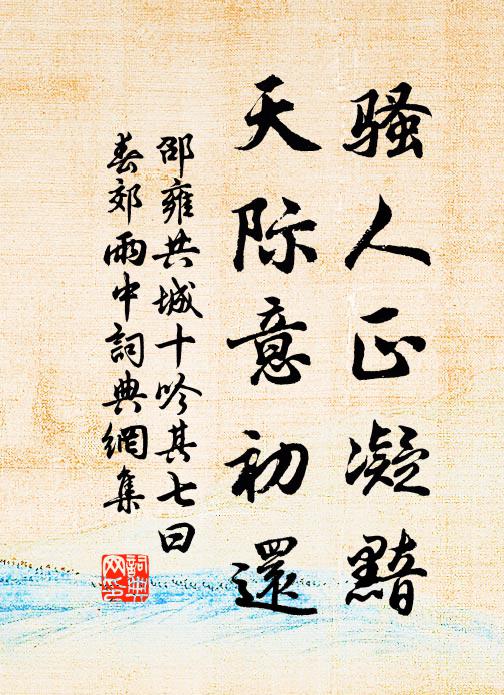 骚人正凝黯
天际意初還
邵雍共城十吟其七曰
春郊雨中詞典網集
詞典网集